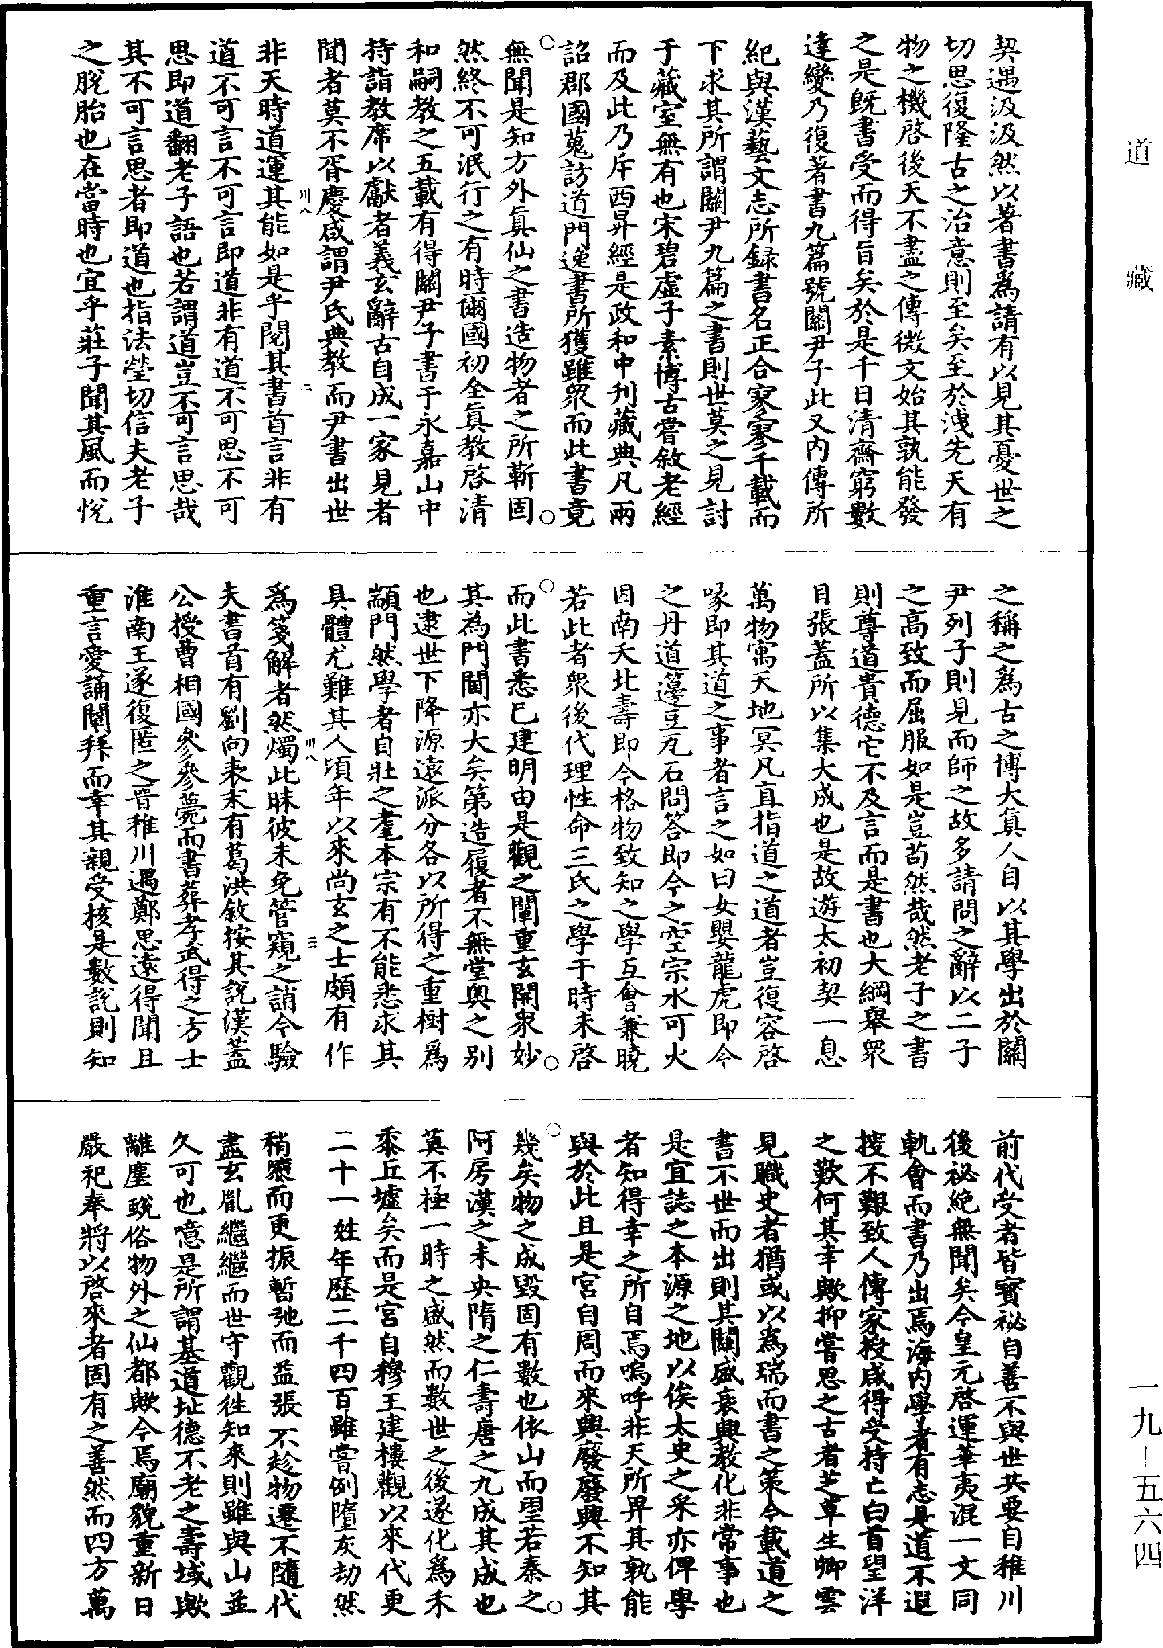 道藏
契遇汲汲然以著書爲請有以見其憂世之
切思復隆古之治意則至矣至於洩先天有
物之機啓後天不盡之傳微文始其孰能發
之是既書受而得旨矣於是千日清齋窮數
達變乃復著書九篇號關尹子此又內傳所
紀與漢藝文志所録書名正合寥寥千載而
下求其所謂關尹九篇之書則世莫之見討
于藏室無有也宋碧虛子素博古嘗敘老經
而及此乃斥西昇經是政和中刊藏典凡兩
詔郡國蒐訪道門逸書所獲雖衆而此書竟
無聞是知方外眞仙之書造物者之所靳固
然終不可泯行之有時爾國初全眞教啓清
和嗣教之五載有得關尹子書于永嘉山中
持詣教席以獻者義玄辭古自成一家見者
聞者莫不胥慶咸謂尹氏典教而尹書出世
川八 二
非天時道運其能如是乎閱其書首言非有
道不可言不可言即道非有道不可思不可
思即道翻老子語也若謂道豈不可言思哉
其不可言思者即道也指法瑩切信夫老子
之脫胎也在當時也宜乎莊子聞其風而悅
之稱之爲古之博大眞人自以其學出於關
尹列子則見而師之故多請問之辭以二子
之高致而屈服如是豈苟然哉然老子之書
則尊道貴德它不及言而是書也大綱舉衆
目張蓋所以集大成也是故遊太初契一息
萬物寓天地冥凡直指道之道者豈復容啓
喙即其道之事者言之如曰女嬰龍虎即今
之丹道籩豆瓦石問答即今之空宗水可火
因南夭北壽即今格物致知之學互會兼曉
若此者衆後代理性命三氏之學于時未啓
而此書悉已建明由是觀之闡重玄開衆妙
其為門閫亦大矣第造履者不無堂奧之別
也逮世下降源遠派分各以所得之重樹爲
顓門然學者自壯之耄本宗有不能悉求其
具體尤難其人頃年以來尚玄之士頗有作
川八 三
爲箋解者然燭此昧彼未免管窺之誚今驗
夫書首有劉向表末有葛洪敘按其說漢蓋
公授曹相國參參薨而書葬孝武得之方士
淮南王遂復匿之晉稚川遇鄭思遠得聞且
重言愛誦闡拜而幸其親受核是數說則知
前代受者皆寶祕自善不與世共要自稚川
後祕絶無聞矣今皇元啓運華夷混一文同
軌會而書乃出焉海內學者有志是道不遐
搜不艱致人傳家授咸得受持亡白首望洋
之歎何其幸歟抑嘗思之古者芝草生卿雲
見職史者猶或以爲瑞而書之策今載道之
書不世而出則其關盛衰興教化非常事也
是宜誌之本源之地以俟太史之采亦俾學
者知得幸之所自焉嗚呼非天所畀其孰能
與於此且是宮自周而來興廢廢興不知其
幾矣物之成毀固有數也依山而堊若秦之
阿房漢之未央隋之仁壽唐之九成其成也
莫不極一時之盛然而數世之後遂化為禾
黍丘墟矣而是宮自穆王建樓觀以來代更
二十一姓年歷二千四百雖嘗例墮灰劫然
稍隳而更振暫弛而益張不趁物遷不隨代
盡玄胤繼繼而世守觀往知來則雖與山並
久可也噫是所謂基道址德不老之壽域歟
離塵蛻俗物外之仙都歟今焉廟貌重新日
嚴祀奉將以啓來者固有之善然而四方萬
一九—五六四